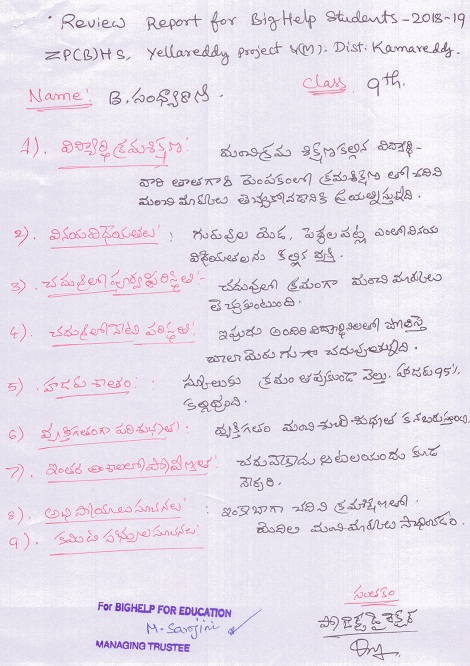 Review Report for BigHelp Students - 2018-19
ZP(B)HS, Yellareddy project Y(M). Dist. Kamareddy.
Name: B. సంధ్యారాణి. Class 9th.
1). విద్యార్థి క్రమశిక్షణ: మంచిక్రమ శిక్షణ కల్గిన విద్యార్థి-
వారి తాతగారి పెంపకంలో క్రమశిక్షణ తో చదివి
మంచి మార్కులు తెచ్చుకోవడానికి ప్రయత్నిస్తున్నది.
2). వినయవిధేయతలు: గురువుల యెడ, పెద్దలపట్ల ఎంతో వినయ
విధేయతలను కల్గిన వ్యక్తి.
3). చదువులో పూర్వపు పరిస్థితి:- చదువులో క్రమంగా మంచి మార్కులు
తెచ్చుకుంటుంది.
4). చదువులో నేటి పరిస్థితి: ఇప్పుడు అందరి విద్యార్థినిలలో పోలిస్తే
చాలా మెరుగుగా చదువుతున్నది.
5). హాజరు శాతం: స్కూలుకు క్రమం తప్పకుండా వెల్లు. హాజరు 95%
కల్గివుంది.
6) వ్యక్తిగతంగా పరిశుభ్రత: వ్యక్తిగతం మంచి శుచి-శుభ్రత కనబరుస్తుంది.
7). ఇతర అంశాలలో ప్రావీణ్యత: చదువేకాదు ఆటలయందు కూడ
నేర్పరి.
8). అభిప్రాయాలు సూచనలు: ఇంకా బాగా చదివి క్రమశిక్షణలో
9). కమిటి సభ్యుల సూచనలు: మెదిలి మంచి మార్కులు సాధించడం.
సంతకం
For BIGHELP FOR EDUCATION
M. Sarojini
ప్రాజెక్ట్ డైరెక్టర్
MANAGING TRUSTEE